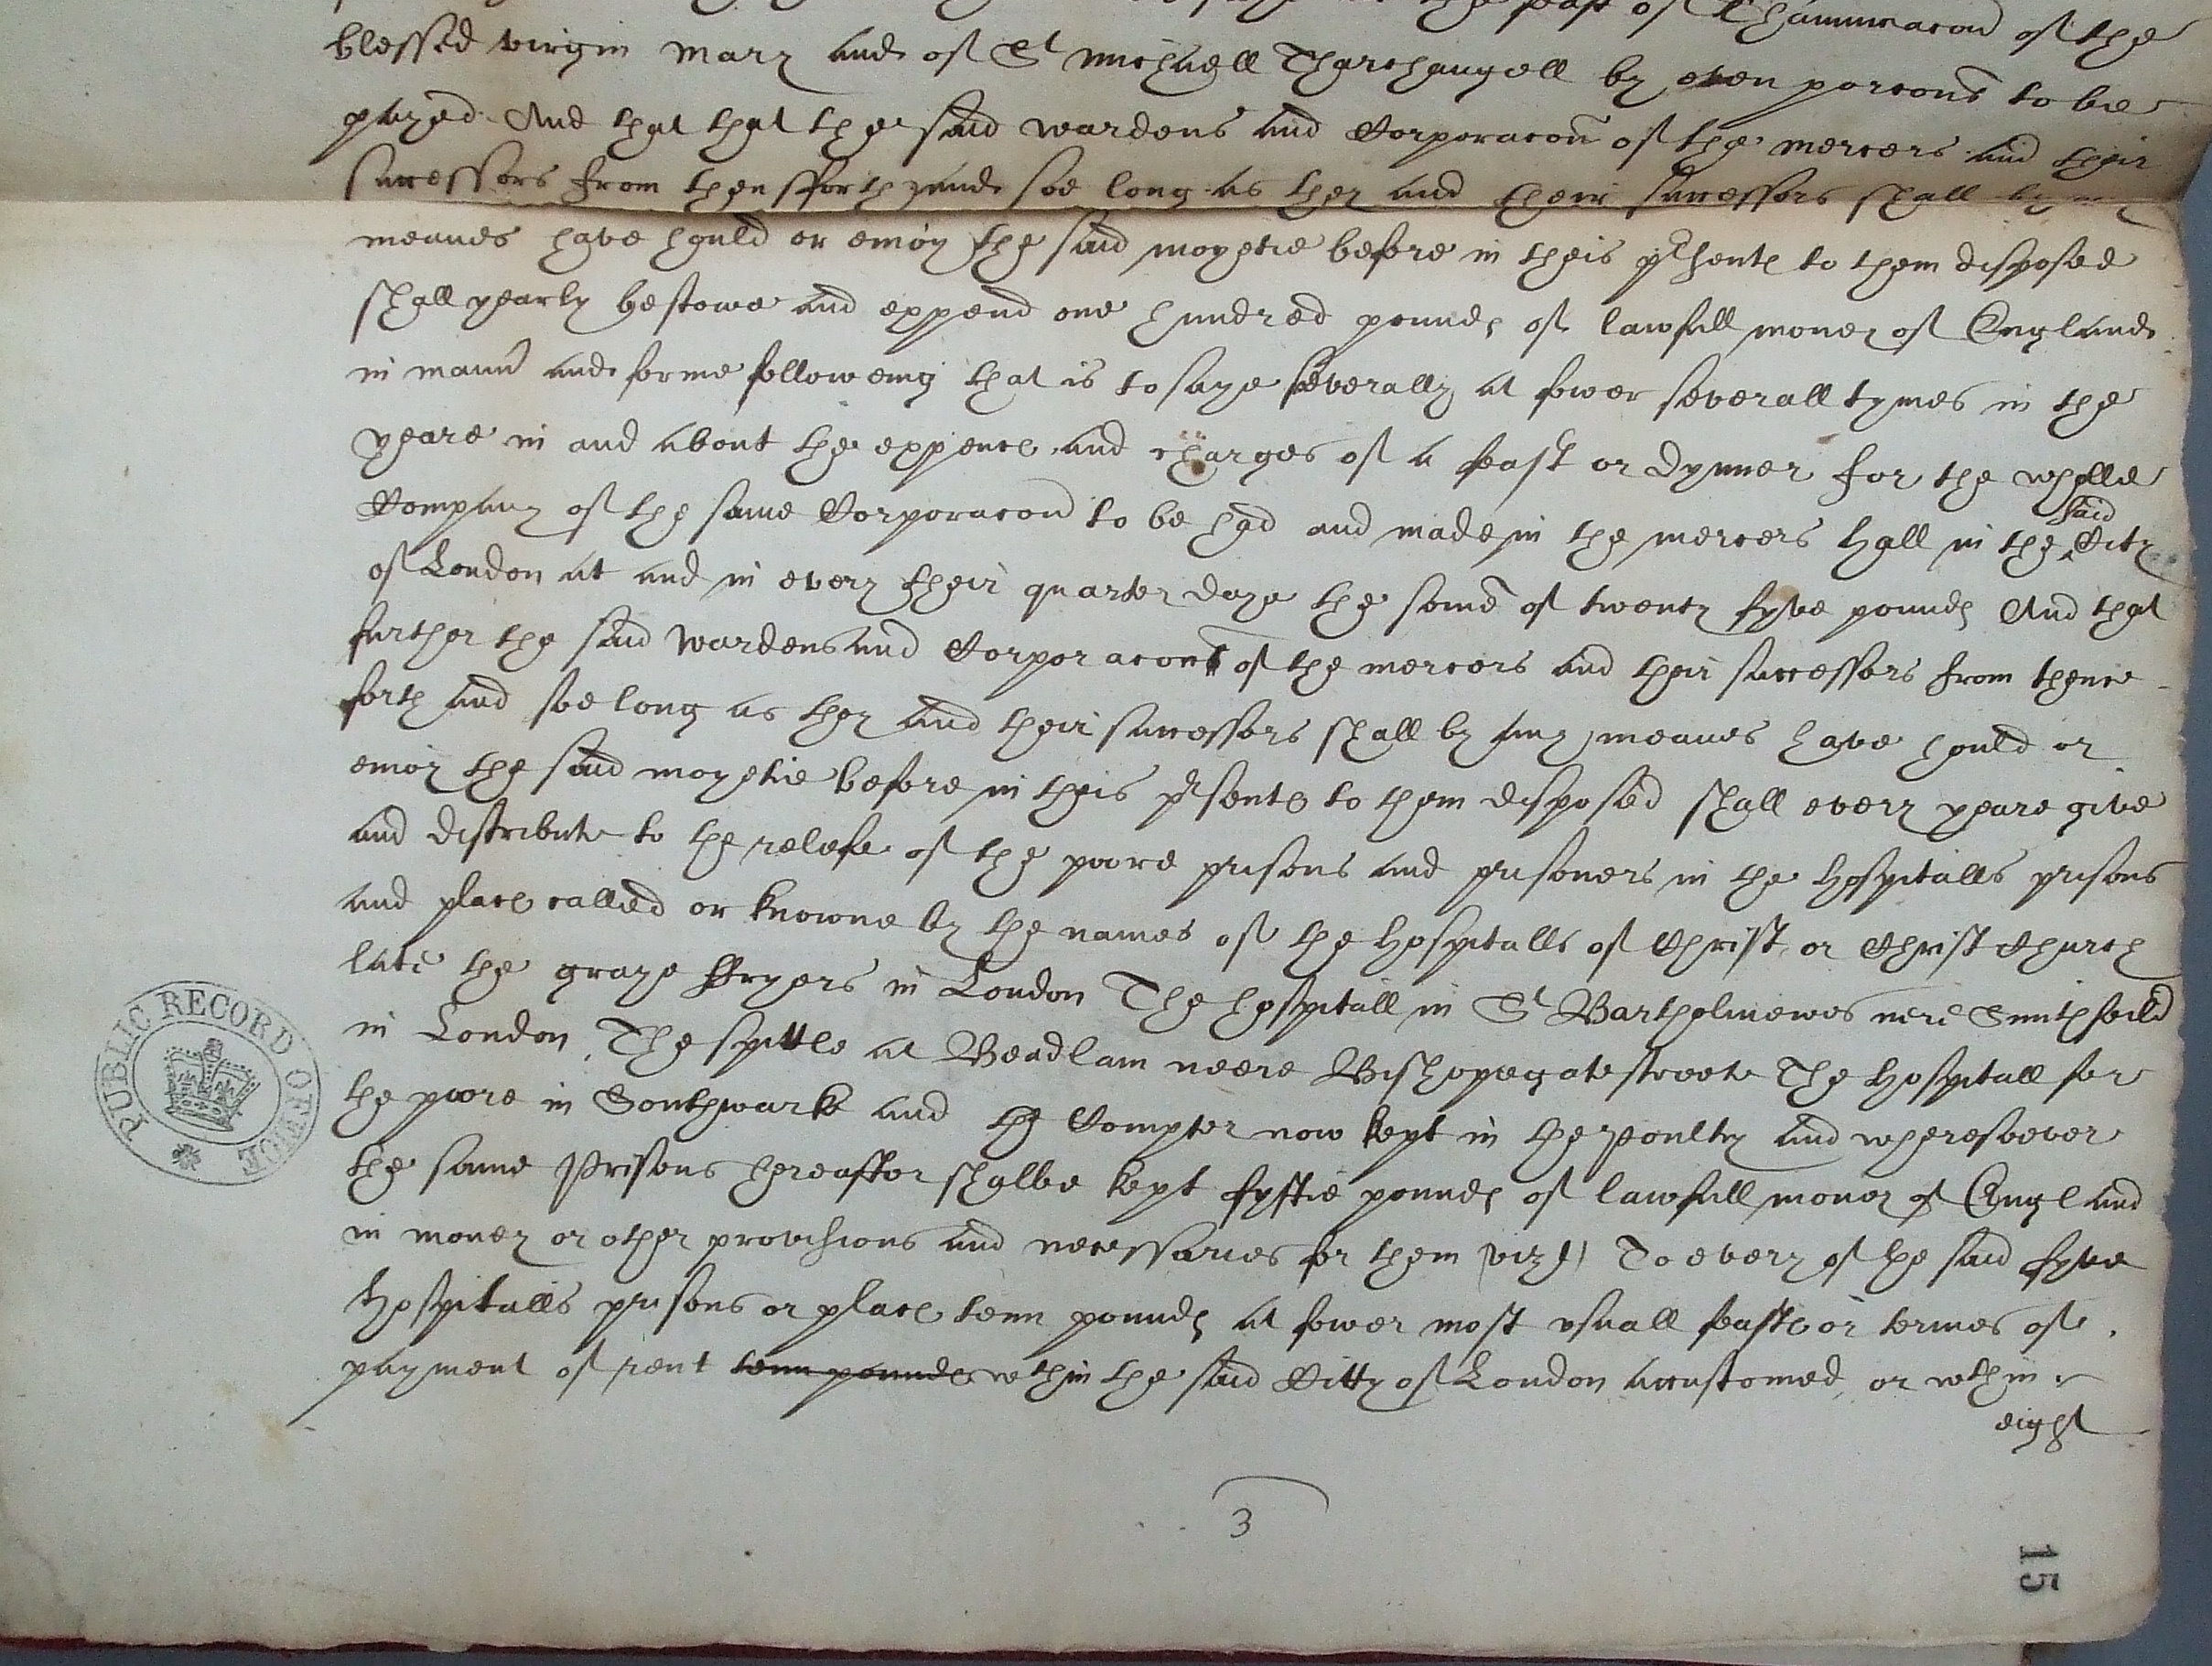 feast of Thannunacon of the
blessed virgin Mary and of St Michaell Tharchangell by even porcons to be
payed And that that the said wardens and Corporacon of the mercers and their
successors from thensfforth and soe long as they and their successors shall by any
meanes have hould or enioy the said moyetie before in theis presents to them disposed
shall yearly bestowe and expend one hundred pounds of lawfull money of England
in mann and forme followeing that is to saye severally at fower severall tymes in the
yeare in and about the expence and charges of a feast or dynner for the wholle
Company of the same Corporacon to be had and made in the mercers hall in the said Citty
of London at and in every their quarter daye the some of twenty fyve pounds And that
further the said wardens and Corporacon of the mercers and their successors from thence
forth and soe long as they and their successors shall by any meanes have hould or
enioy the said moyetie before in theis presents to them disposed shall every yeare give
and distribute to the relefe of the poore prisons and prisoners in the Hospitalls prisons
and places called or knowne by the names of the Hospitalls of Christ or Christ Church
late the graye ffryers in London The hospitall in St Bartholmewes nere Smithfeild
in London The spittle at Beadlam neere Bishopsgatestreete The Hospitall for
the poore in Southwarke and the Compter now kept in the Poultry and wheresoever
the same Prisons hereafter shalbe kept fyftie pounds of lawfull money of England
in money or other provisions and necessaries for them (vizt) To every of the said fyve
Hospitalls prisons or places tenn pounds at fower most usuall feasts or termes of
payment of rent tenn pounds wthin the said Citty of London accustomed or wthin
eight
3
15
PUBLIC RECORD OFFICE